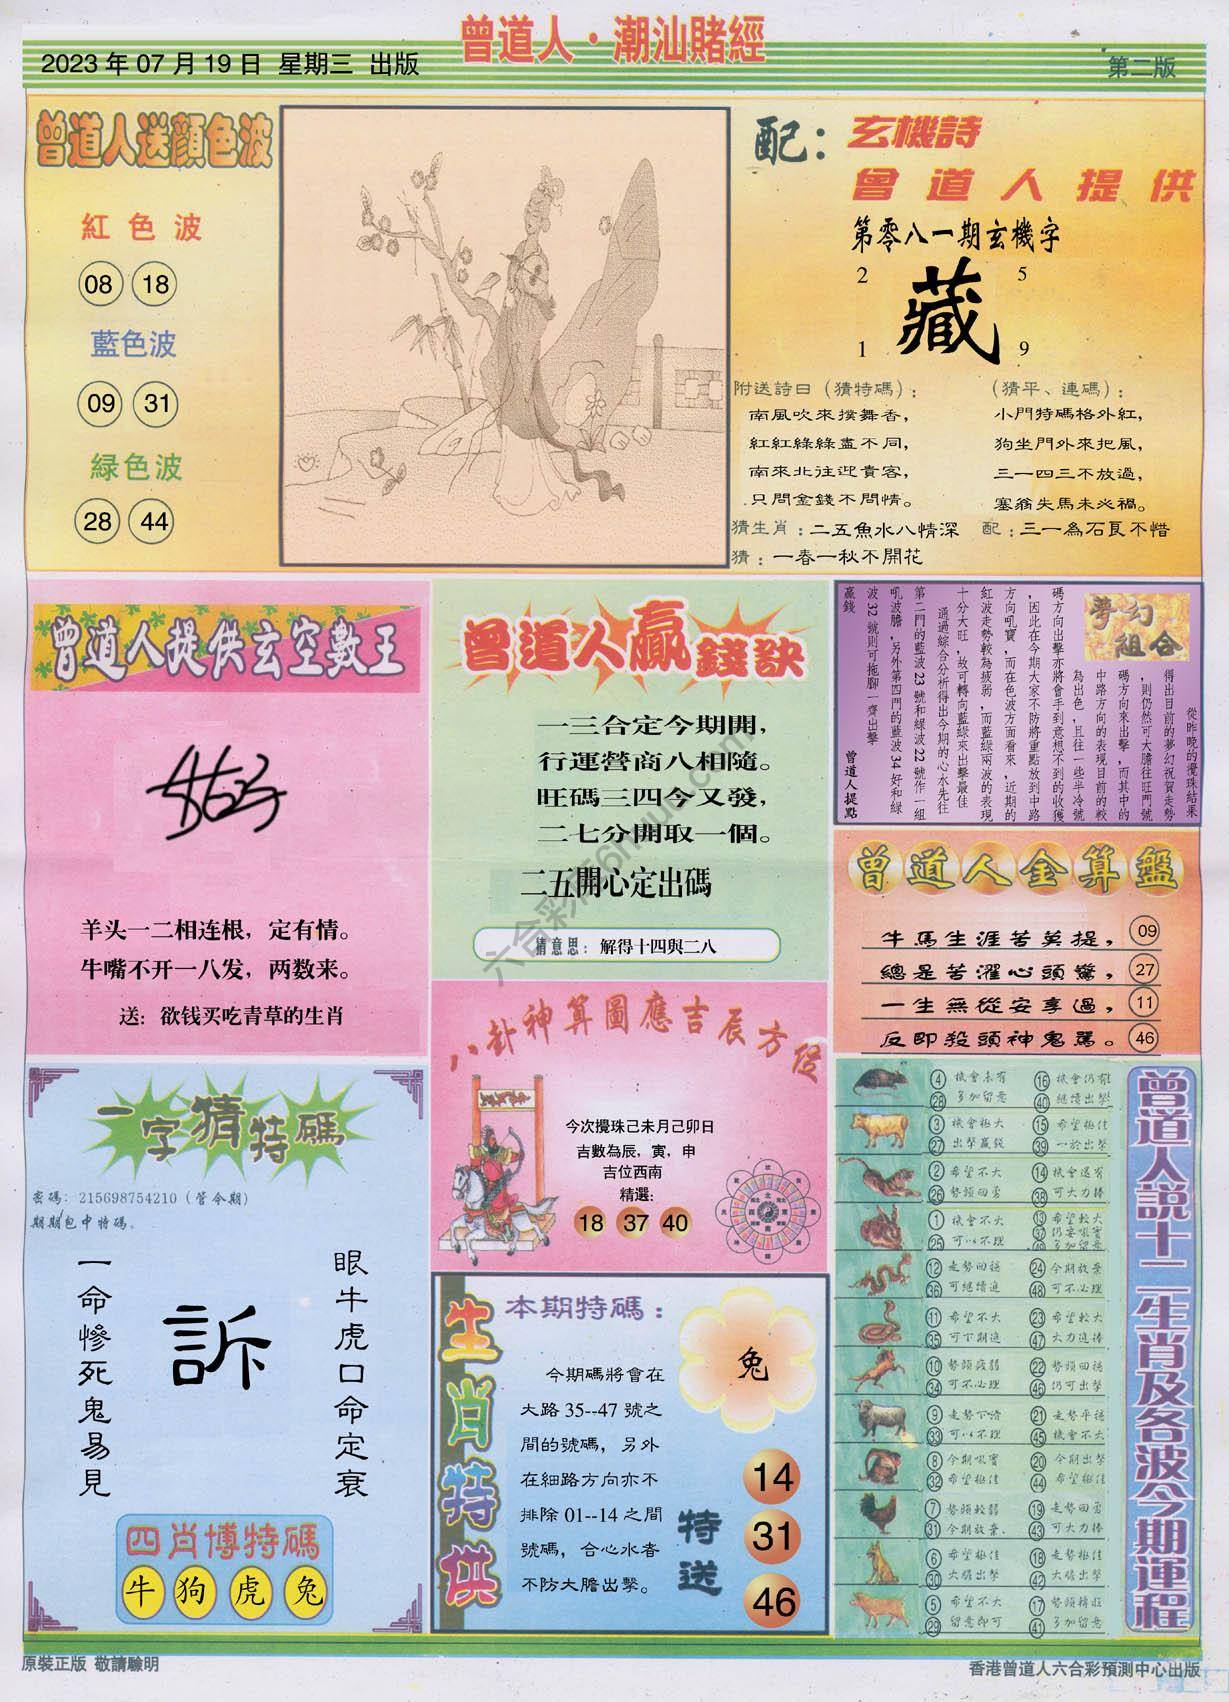 曾道人·潮汕賭經
2023 年 07 月 19 日 星期三 出版
第二版
曾道人送顏色波
紅色波
08 18
藍色波
09 31
緑色波
28 44
配：
玄機詩
曾道人提供
第零八一期玄機字
2 5
藏
1 9
附送詩曰（猜特碼）：
南風吹來撲舞香，
紅紅綠綠盡不同，
南來北往迎貴客，
只問金錢不問情。
（猜平、連碼）：
小門特碼格外紅，
狗坐門外來把風，
三一四三不放過，
塞翁失馬未必禍。
猜生肖：二五魚水八情深
配：三一為石艮不惜
猜：一春一秋不開花
曾道人提供玄空數王
羊头一二相连根，定有情。
牛嘴不开一八发，两数来。
送：欲钱买吃青草的生肖
曾道人贏錢訣
一三合定今期開，
行運營商八相隨。
旺碼三四今又發，
二七分開取一個。
二五開心定出碼
猜意思：解得十四與二八
夢幻組合
從昨晚的攪珠結果
得出目前的夢幻祝賀走勢
，則仍然可大膽往旺門號
碼方向來出擊，而其中的
中路方向的表現目前的較
為出色，且往一些半冷號
碼方向出擊亦將會手到意想不到的收獲
，因此在今期大家不防將重點放到中路
方向吼寶，而在色波方面看來，近期的
紅波走勢較為疲弱，而藍綠兩波的表現
十分大旺，故可轉向藍綠來出擊最佳
通過綜合分析得出今期的心水先往
第二門的藍波 23 號和綠波 22 號作一組
吼波膽，另外第四門的藍波 34 好和綠
波 32 號則可拖腳一齊出擊
贏錢
曾道人提點
曾道人金算盤
牛馬生涯苦莫提， 09
總是苦濯心頭驚， 27
一生無從安享過， 11
反即殺頭神鬼罵。 46
八卦神算圖應吉辰方位
今次攪珠己未月己卯日
吉數為辰，寅，申
吉位西南
精選：
18 37 40
一字猜特碼
密碼：215698754210（管今期）
期期包中特碼。
眼牛虎口命定衰
訴
一命慘死鬼易見
四肖博特碼
牛 狗 虎 兔
生肖特供
本期特碼：
兔
今期碼將會在
大路 35--47 號之
間的號碼，另外
在細路方向亦不
排除 01--14 之間
號碼，合心水者
不防大膽出擊。
特送
14
31
46
曾道人説十二生肖及各波今期運程
4 機會未有 16 機會仍有
28 多加留意 40 繼續出擊
3 機會極大 15 希望極佳
27 出擊贏錢 39 一於出擊
2 希望不大 14 機會還有
26 勢頭回勇 38 可大力捧
1 機會不大 13 希望較大
25 可以不理 37 仍要吼實
49 多加留意
12 走勢回穩 24 今期放棄
36 可繼續追 48 可不必理
11 希望不大 23 希望較大
35 可下期追 47 大力追捧
10 勢頭疲弱 22 勢頭回穩
34 可不必理 46 仍可出擊
9 走勢下滑 21 走勢平穩
33 可以不理 45 機會不大
8 今期吼實 20 今期出擊
32 希望極佳 44 希望極佳
7 勢頭較弱 19 走勢回勇
31 今期放棄. 43 可大力捧
6 希望極佳 18 走勢極佳
30 大膽出擊 42 大膽出擊
5 希望不大 17 勢頭轉旺
29 留意即可 41 多加留意
原裝正版 敬請驗明
香港曾道人六合彩預測中心出版